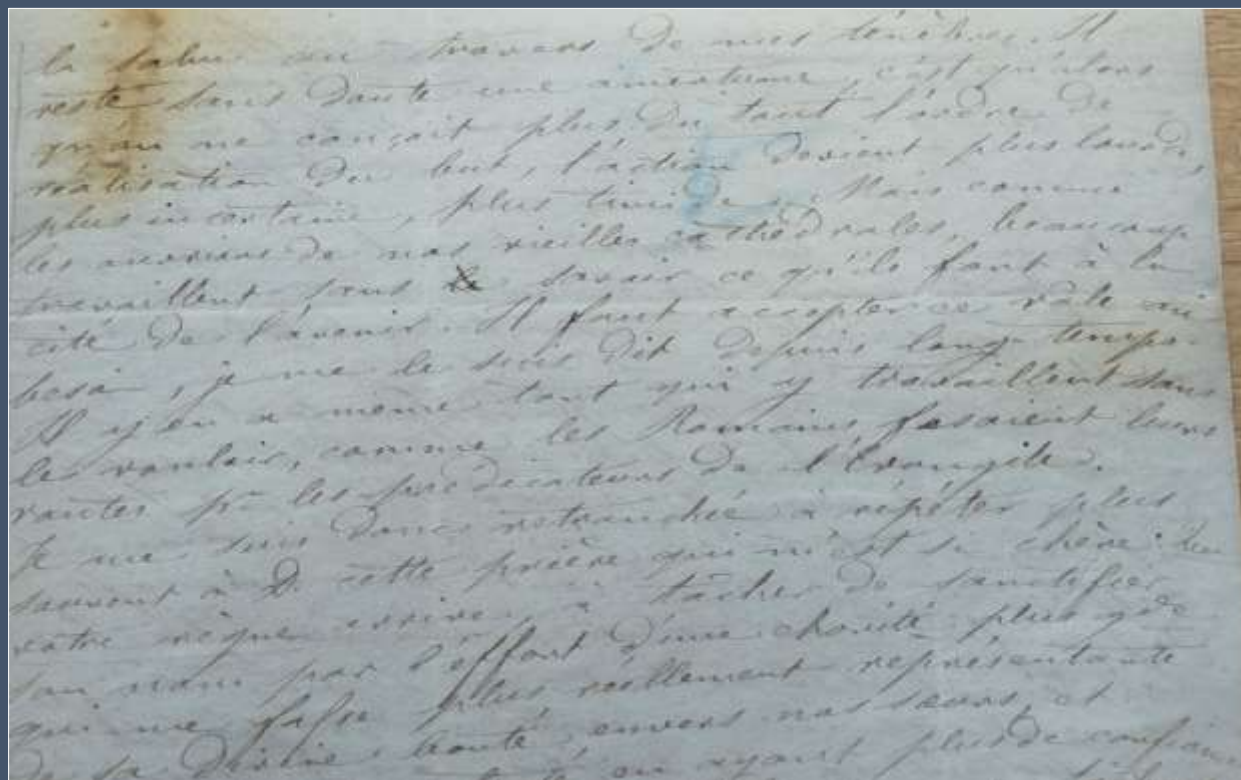 la salue au travers de nos ténèbres. Il
reste sans doute une amertume, c'est qu'alors
qu'on ne conçoit plus du tout l'ordre de
réalisation du but, l'action devient plus lourde,
plus incertaine, plus timide. Mais comme
les ouvriers de nos vieilles cathédrales, beaucoup
travaillent sans savoir ce qu'ils font à la
cité de l'avenir. Il faut accepter ce rôle au
besoin, je me le suis dit depuis long-temps.
Il y en a même tant qui y travaillent sans
le vouloir, comme les Romains fesaient leurs
routes pr les prédicateurs de l'Evangile.
Je me suis donc retranchée à répéter plus
souvent à D. cette prière qui m'est si chère: Que
votre règne arrive, à tâcher de sanctifier
son nom par l'effort d'une charité plus gde
qui me fasse plus réellement représentante
de sa divine bonté envers nos sœurs, et
en ayant plus de confiance